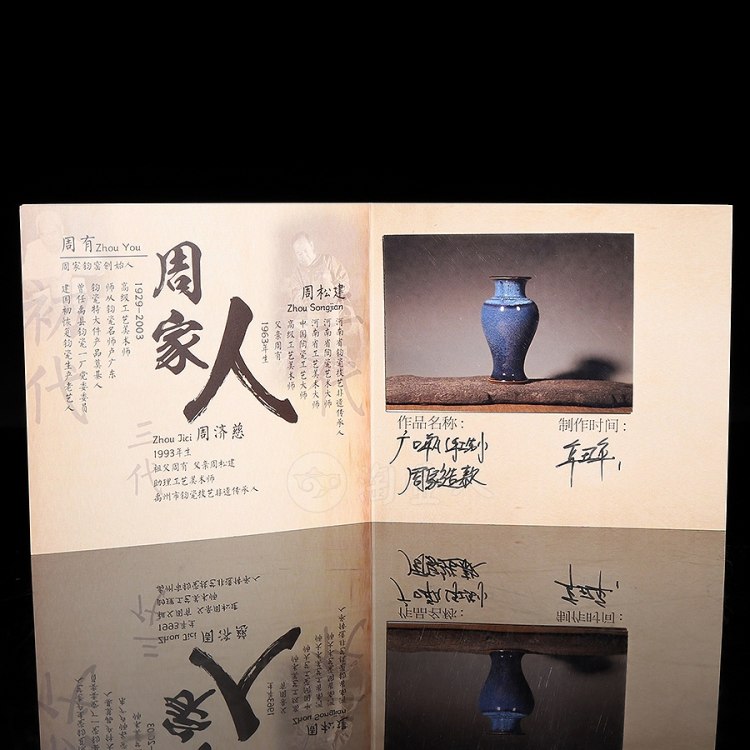 周有 Zhou You
周家钧窑创始人
1929-2003
高级工艺美术师
师从钧瓷名师卢广东
钧瓷特大件产品奠基人
曾任禹县钧瓷一厂党委委员
建国初恢复钧瓷生产老艺人
初代
周家人
周松建
Zhou Songjian
1963年生
父亲周有
高级工艺美术师
中国陶瓷工艺大师
河南省工艺美术大师
河南省陶瓷艺术大师
河南省钧瓷技艺非遗传承人
二代
三代
Zhou Jici 周济慈
1993年生
祖父周有 父亲周松建
助理工艺美术师
禹州市钧瓷技艺非遗传承人
作品名称:
广口瓶
周家造款
制作时间:
辛丑年